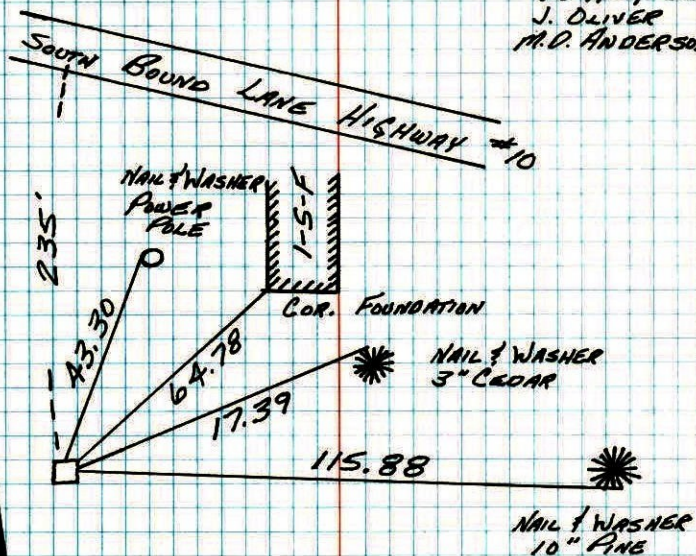 J. OLIVER
M.D. ANDERSO
SOUTH BOUND LANE HIGHWAY #10
NAIL & WASHER
POWER
POLE
1-S-F
235'
COR. FOUNDATION
43.30
64.78
NAIL & WASHER
3" CEDAR
17.39
115.88
NAIL & WASHER
10" PINE